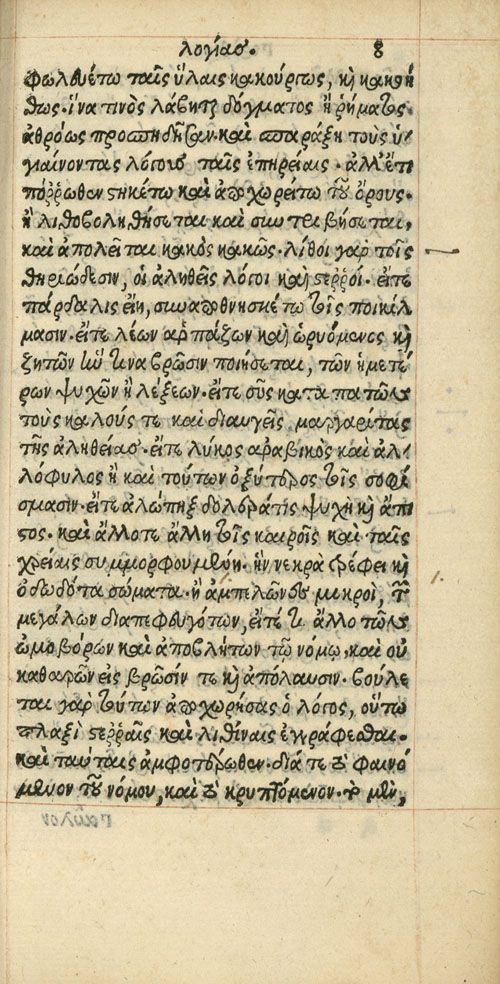 λογίας. 8
φωλευέτω ταῖς ὕλαις κακούργως, κὶ κακοή
θως. ἵνα τινὸς λάβηται δόγματος ἢ ῥήματος.
ἀθρόως προσπηδῆσαν. καὶ σπαράξη τοὺς ὑ
γιαίνοντας λόγους ταῖς ἐπηρείαις. ἀλλ' ἔτι
πόῤῥωθεν στηκέτω καὶ ἀποχωρείτω τοῦ ὄρους.
ἢ λιθοβοληθήσεται καὶ συντριβήσεται,
καὶ ἀπολεῖται κακὸς κακῶς. λίθοι γὰρ τοῖς
θηριώδεσιν, οἱ ἀληθεῖς λόγοι καὶ στεῤῥοί. εἴτε
πάρδαλις εἴη, συναποθνησκέτω τοῖς ποικίλ
μασιν. εἴτε λέων ἁρπάζων καὶ ὠρυόμενος κὶ
ζητῶν ἣν τινα βρῶσιν ποιήσεται, τῶν ἡμετέ
ρων ψυχῶν ἢ λέξεων. εἴτε σῦς καταπατῶν
τοὺς καλούς τε καὶ διαυγεῖς μαργαρίτας
τῆς ἀληθείας. εἴτε λύκος ἀραβικὸς καὶ ἀλ
λόφυλος ἢ καὶ τούτων ὀξύτερος τοῖς σοφί
σμασιν. εἴτε ἀλώπηξ δολερά τις ψυχὴ κὶ ἄπι
στος. καὶ ἄλλοτε ἄλλη τοῖς καιροῖς καὶ ταῖς
χρείαις συμμορφουμένη. ἣν νεκρὰ τρέφει κὶ
ὀδωδότα σώματα. ἢ ἀμπελῶνες μικροὶ, τῶν
μεγάλων διαπεφευγότων, εἴτέ τι ἄλλο τῶν
ὠμοβόρων καὶ ἀποβλήτων τῷ νόμῳ, καὶ οὐ
καθαρῶν εἰς βρῶσίν τε κὶ ἀπόλαυσιν. βούλε
ται γὰρ τούτων ἀποχωρήσας ὁ λόγος, οὕτω
πλαξὶ στεῤῥαῖς καὶ λιθίναις ἐγράφεσθαι.
καὶ ταύταις ἀμφοτέρωθεν. διά τε τὸ φαινό
μενον τοῦ νόμου, καὶ τὸ κρυπτόμενον. τὸ μὲν,